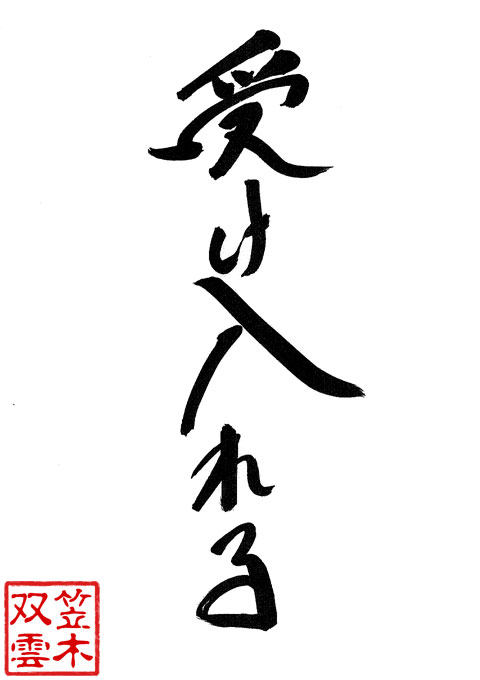 受け入れる
笠木
双雲